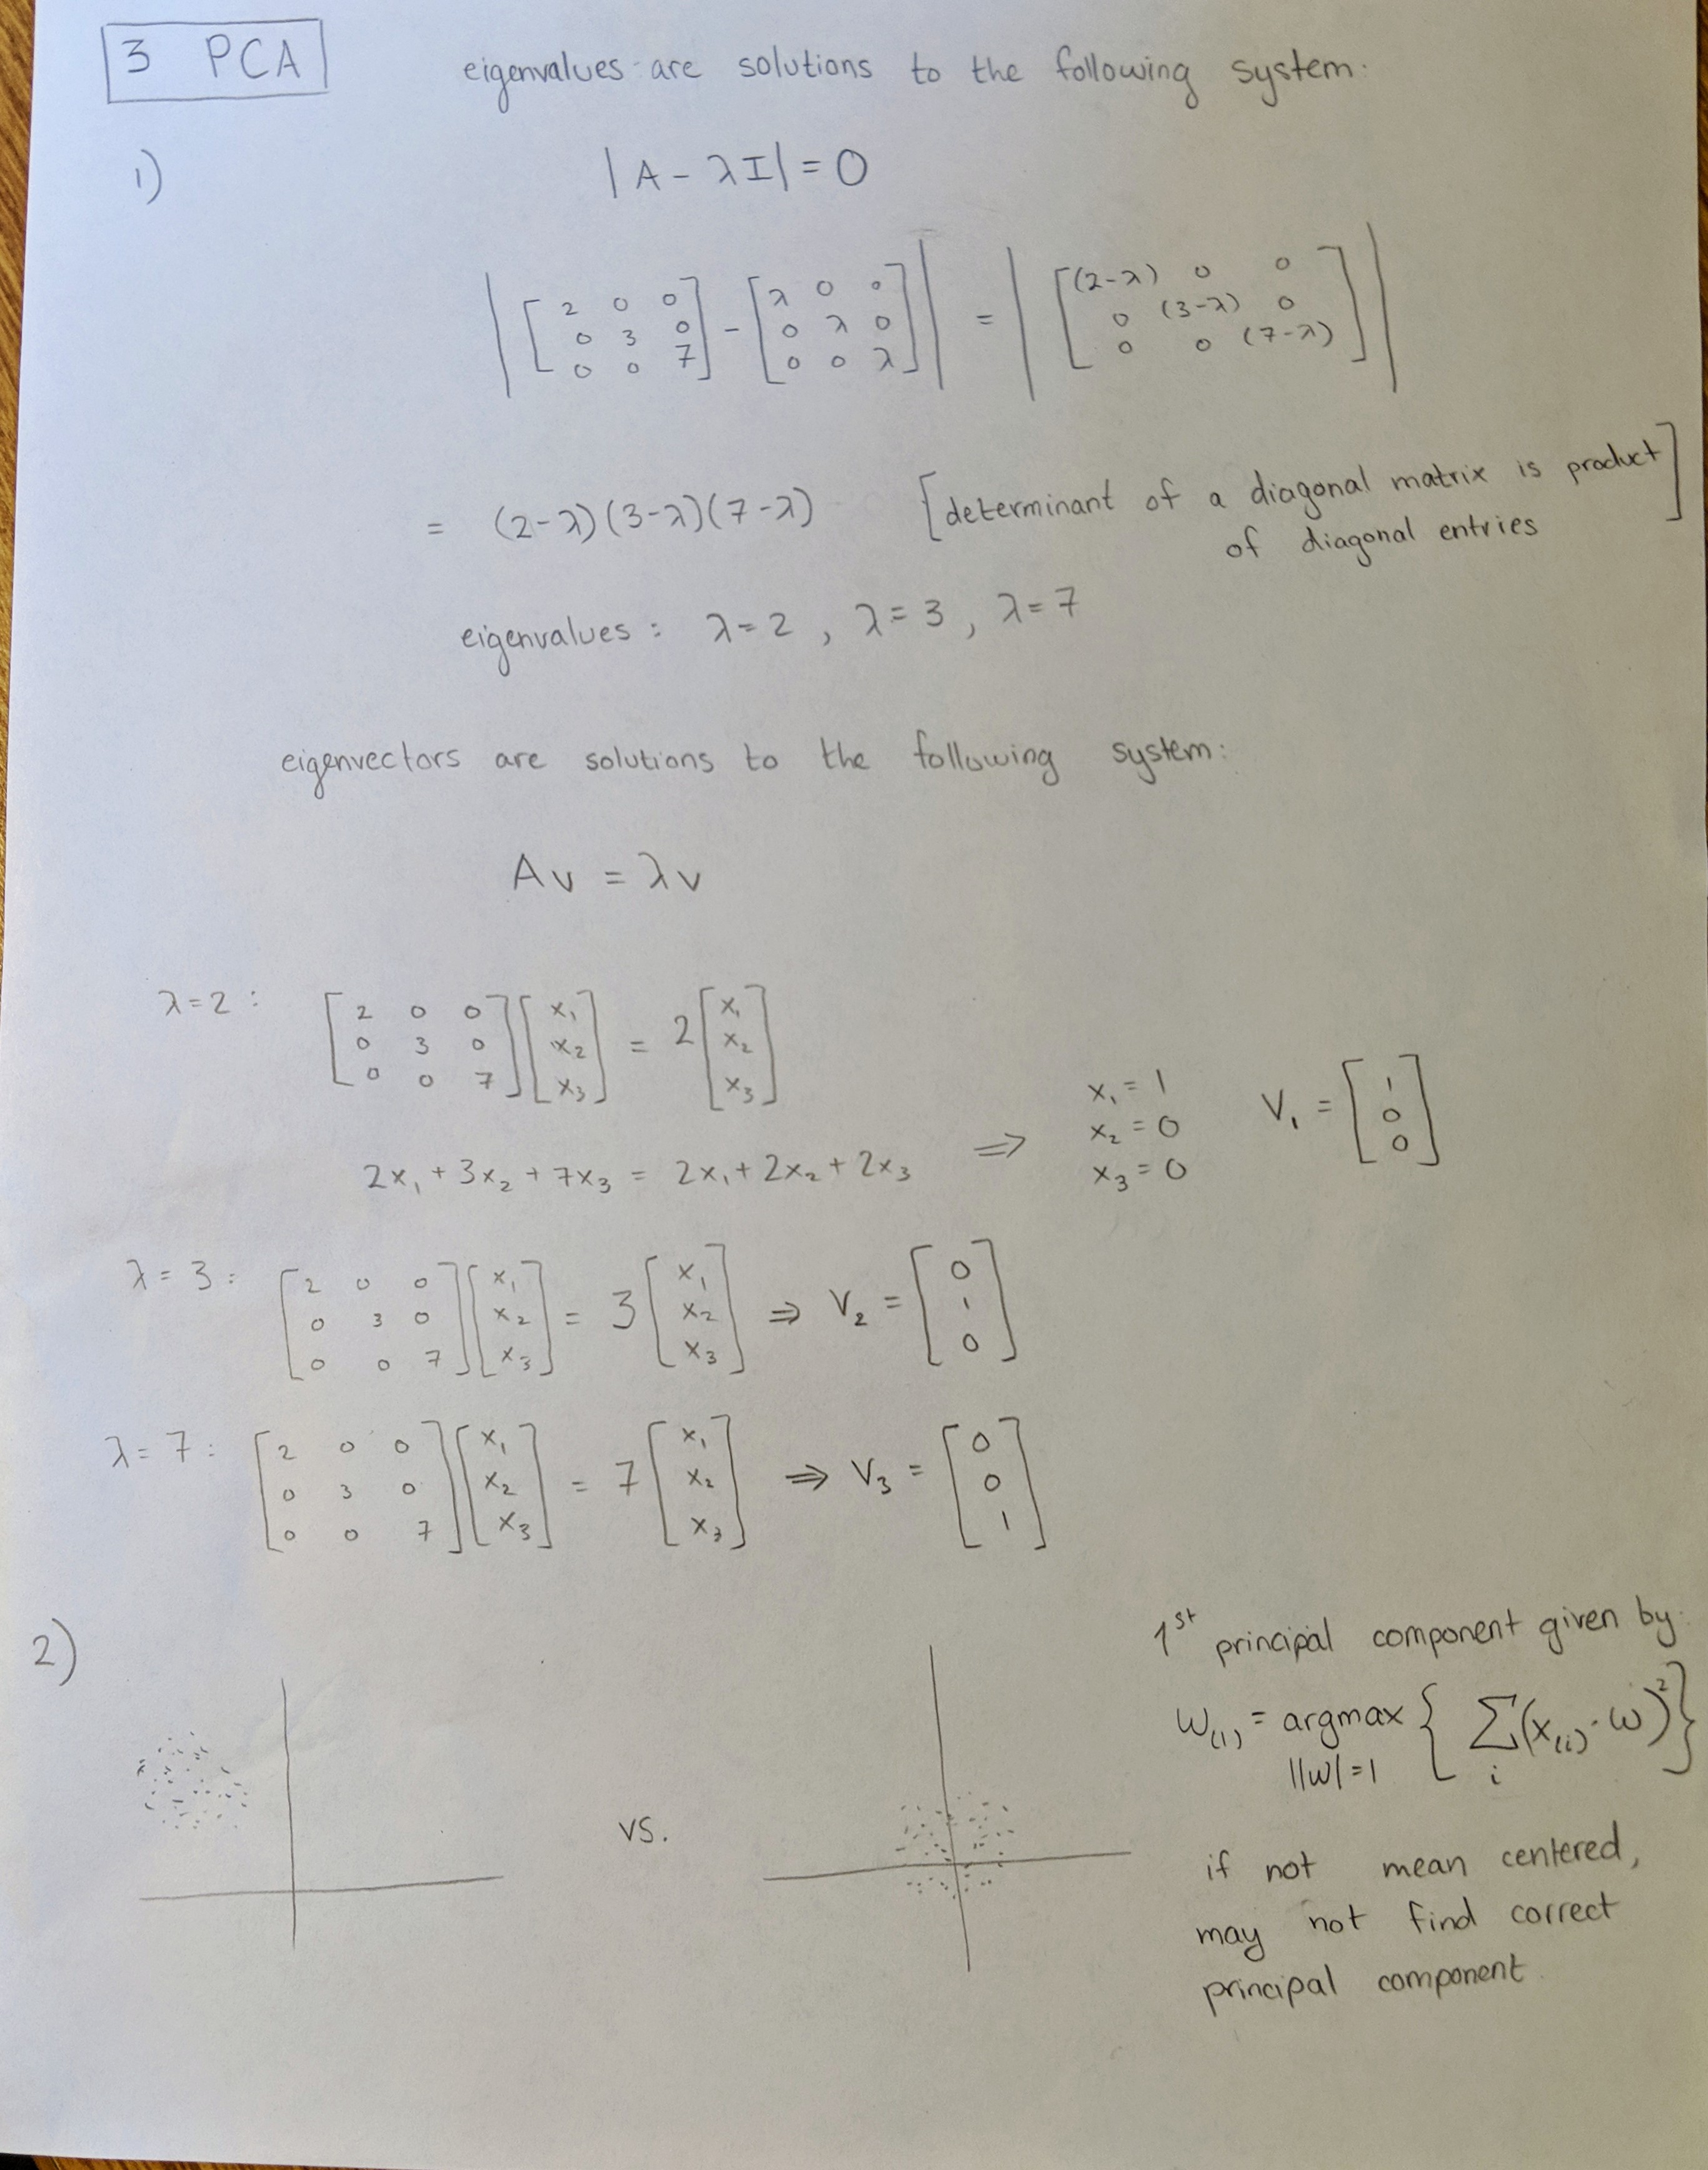 3 PCA
eigenvalues are solutions to the following system:
1)
|A - λI| = 0
| [2 0 0; 0 3 0; 0 0 7] - [λ 0 0; 0 λ 0; 0 0 λ] | = | [(2-λ) 0 0; 0 (3-λ) 0; 0 0 (7-λ)] |
= (2-λ)(3-λ)(7-λ) [determinant of a diagonal matrix is product
of diagonal entries]
eigenvalues: λ=2, λ=3, λ=7
eigenvectors are solutions to the following system:
Av = λv
λ=2: [2 0 0; 0 3 0; 0 0 7] [x₁; x₂; x₃] = 2 [x₁; x₂; x₃]
2x₁ + 3x₂ + 7x₃ = 2x₁ + 2x₂ + 2x₃ ⇒ x₁ = 1 x₂ = 0 x₃ = 0 V₁ = [1; 0; 0]
λ = 3: [2 0 0; 0 3 0; 0 0 7] [x₁; x₂; x₃] = 3 [x₁; x₂; x₃] ⇒ V₂ = [0; 1; 0]
λ = 7: [2 0 0; 0 3 0; 0 0 7] [x₁; x₂; x₃] = 7 [x₁; x₂; x₃] ⇒ V₃ = [0; 0; 1]
2)
vs.
1st principal component given by:
W₍₁₎ = argmax { Σ (x₍ᵢ₎ · w)² }
||w|=1 i
if not mean centered,
may not find correct
principal component.